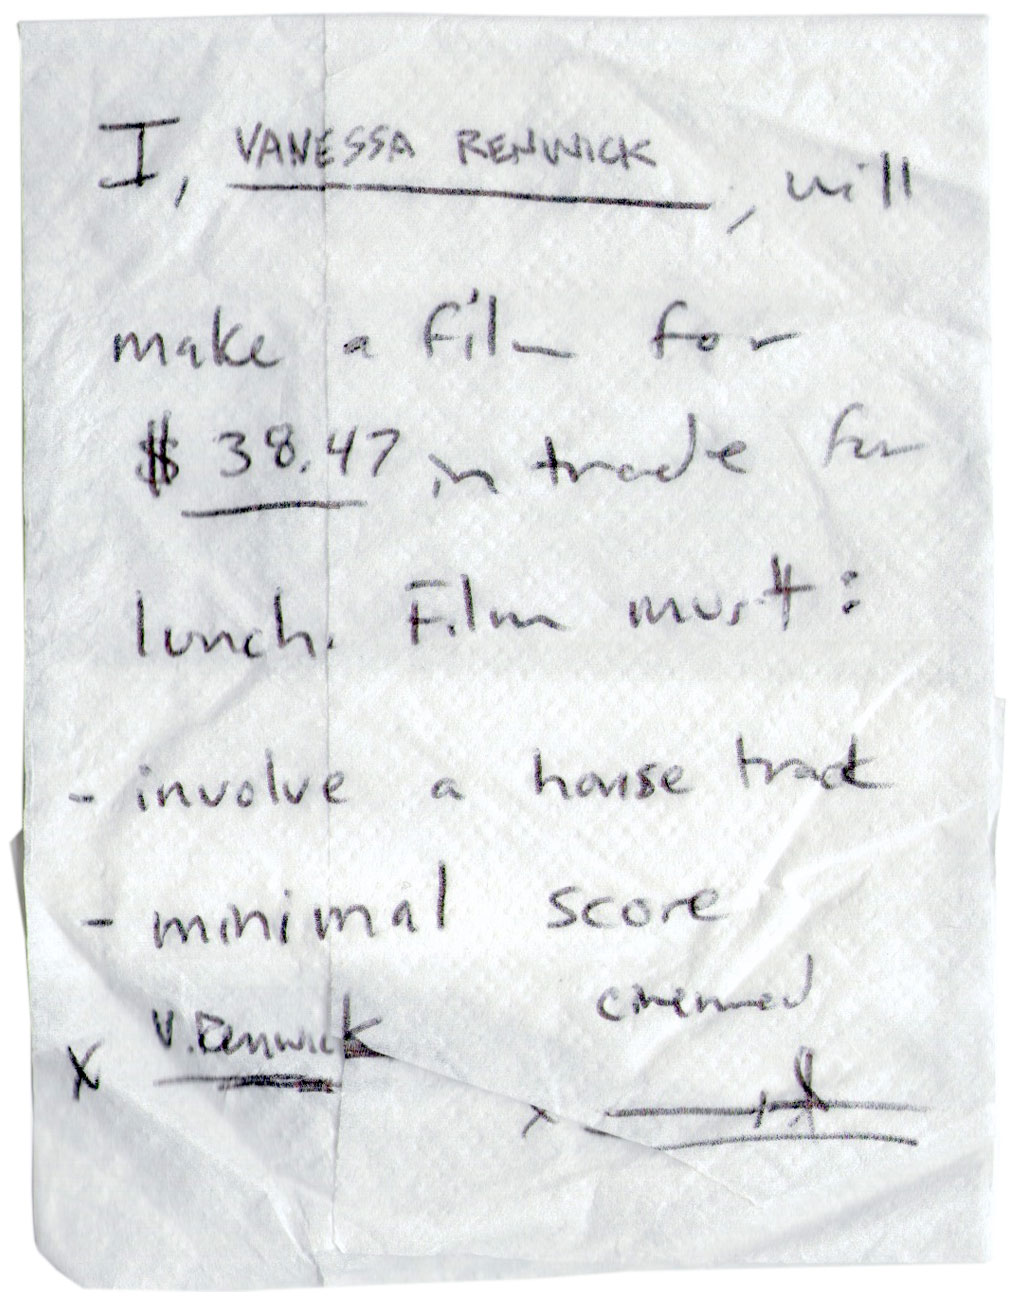 I, VANESSA RENWICK, will
make a film for
$ 38.47 in trade for
lunch. Film must:
- involve a horse track
- minimal score
X V. Renwick
x